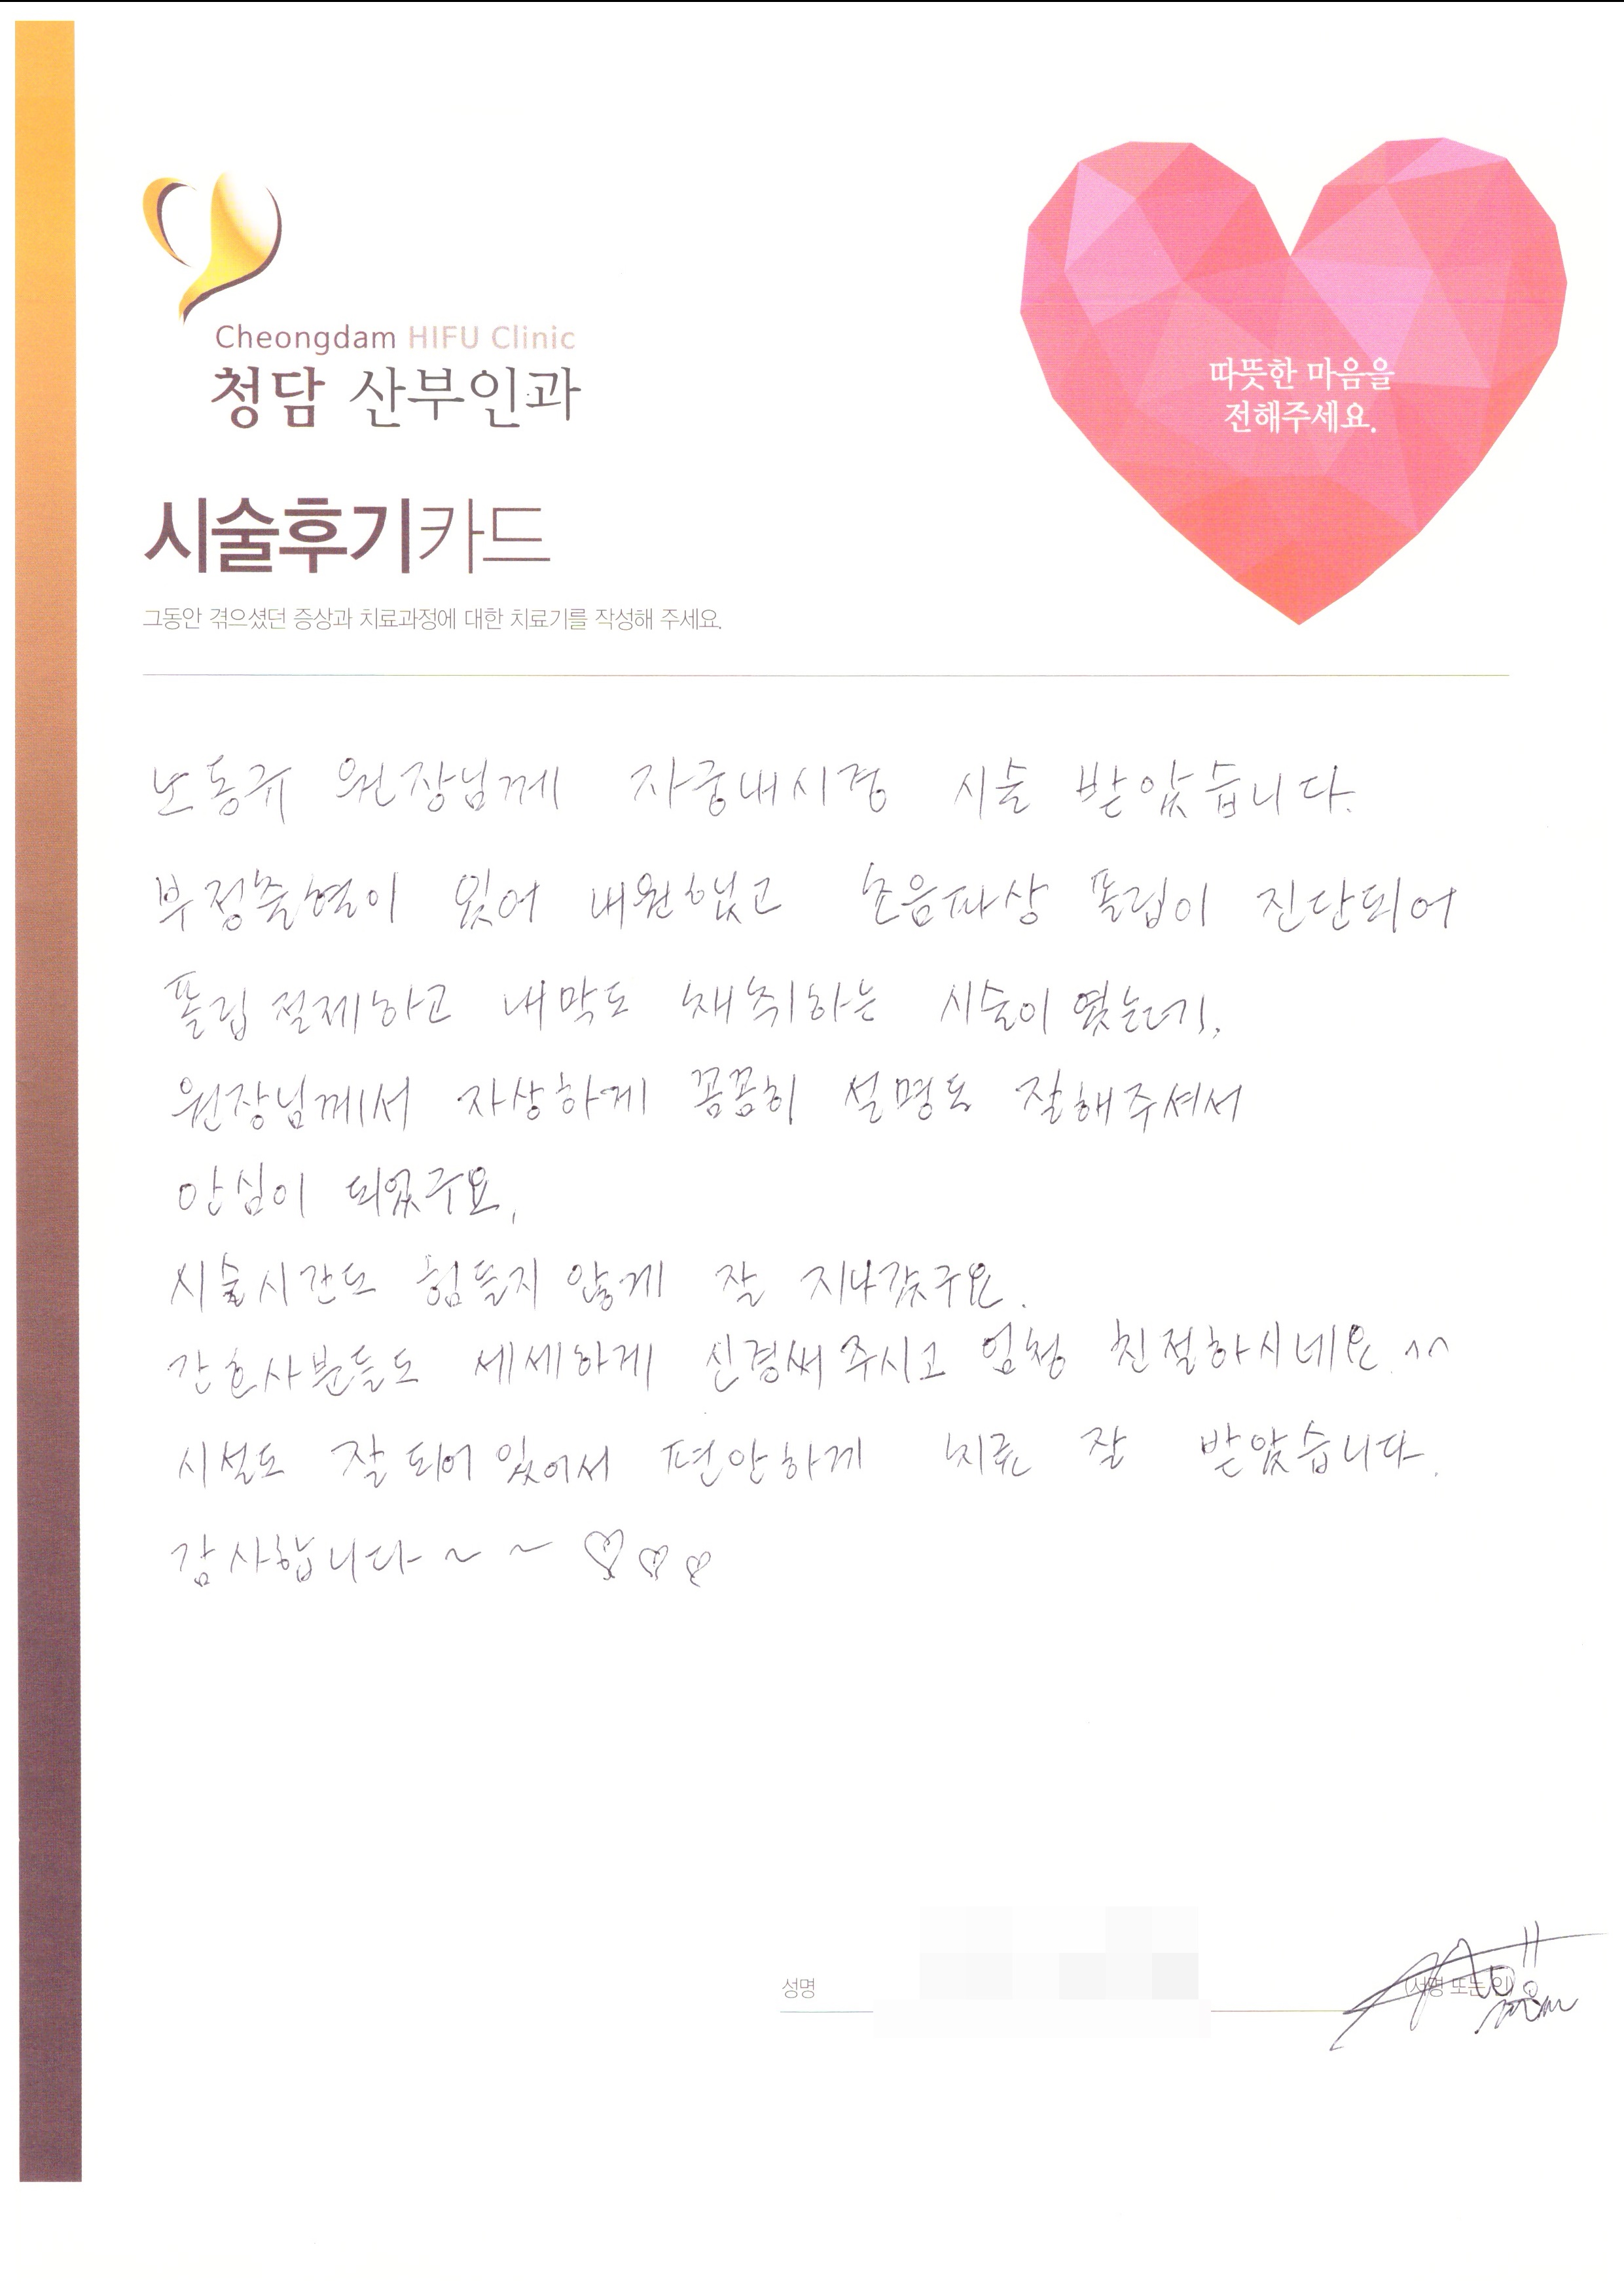 Cheongdam HIFU Clinic
청담 산부인과
따뜻한 마음을
전해주세요.
시술후기카드
그동안 겪으셨던 증상과 치료과정에 대한 치료기를 작성해 주세요.
노동규 원장님께 자궁내시경 시술 받았습니다.
부정출혈이 있어 내원했고 초음파상 폴립이 진단되어
폴립 절제하고 내막도 채취하는 시술이였는데,
원장님께서 자상하게 꼼꼼히 설명도 잘해주셔서
안심이 되었구요,
시술시간도 힘들지 않게 잘 지나갔구요.
간호사분들도 세세하게 신경써주시고 엄청 친절하시네요. ^^
시설도 잘 되어 있어서 편안하게 치료 잘 받았습니다.
감사합니다~ ~ ♡♡♡
성명 (서명 또는 인)